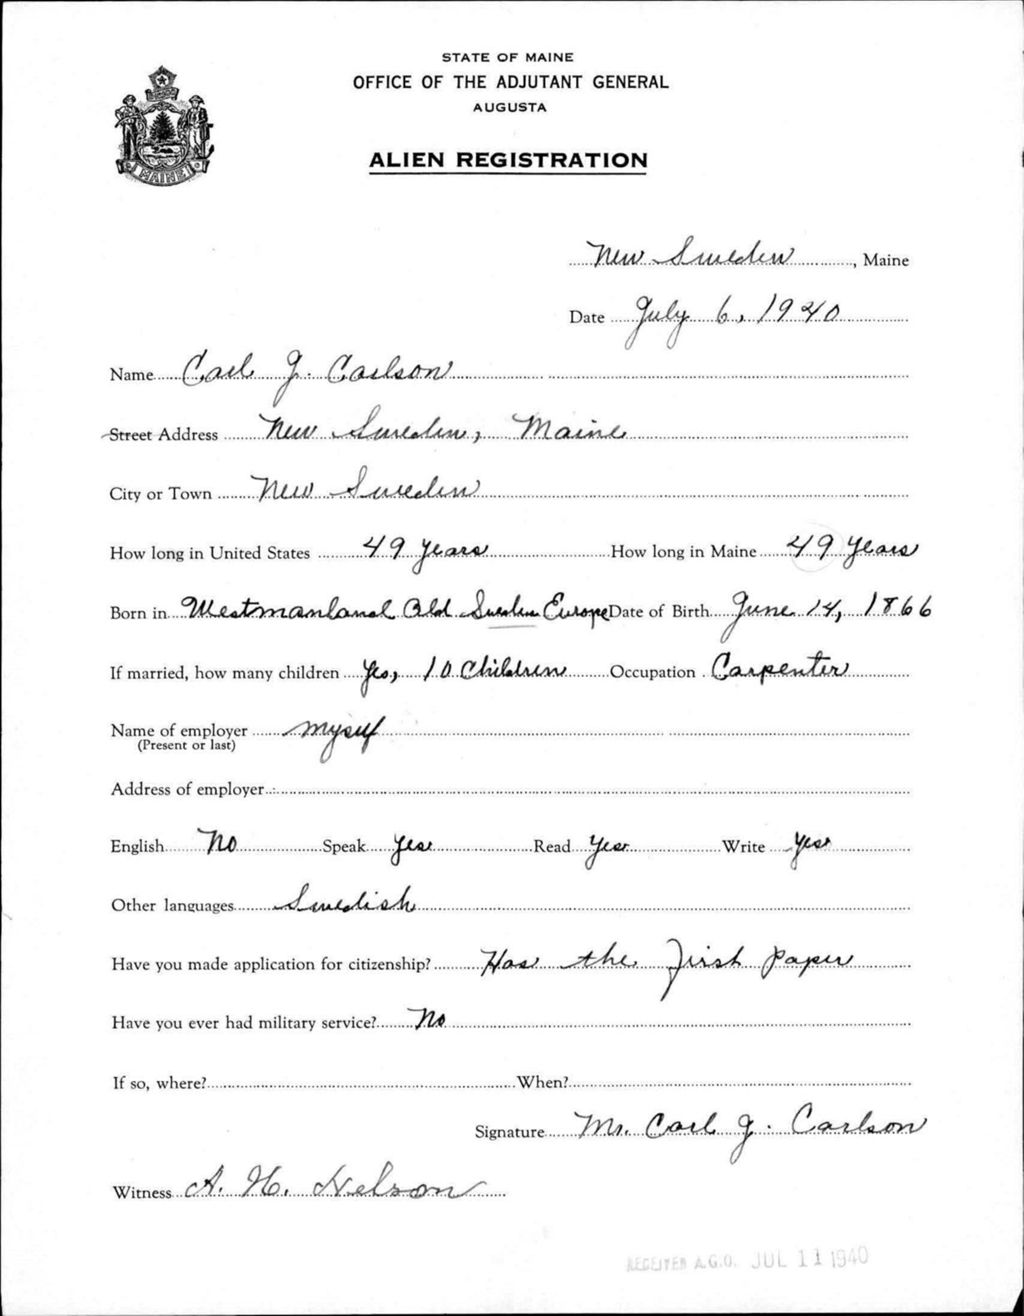 STATE OF MAINE
OFFICE OF THE ADJUTANT GENERAL
AUGUSTA
ALIEN REGISTRATION
MAINE
New Sweden, Maine
Date July 6, 1940
Name Carl J. Carlson
Street Address New Sweden, Maine
City or Town New Sweden
How long in United States 49 years How long in Maine 49 Years
Born in Westmanland Old Sweden Europe Date of Birth June 14, 1866
If married, how many children Yes, 10 Children Occupation Carpenter
Name of employer myself
(Present or last)
Address of employer
English No Speak Yes Read Yes Write Yes
Other languages Swedish
Have you made application for citizenship? Has the First Paper
Have you ever had military service? No
If so, where? When?
Signature Mr. Carl J. Carlson
Witness A. H. Nelson
RECEIVED A.G.O. JUL 11 1940